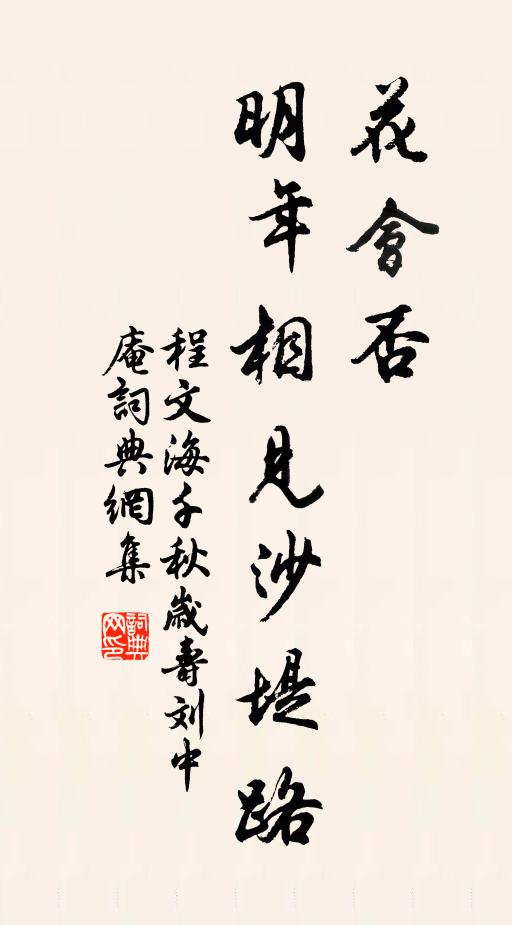 花會否
明年相見沙堤路
程文海千秋歲壽刘中
庵詞典網集
詞典
网印